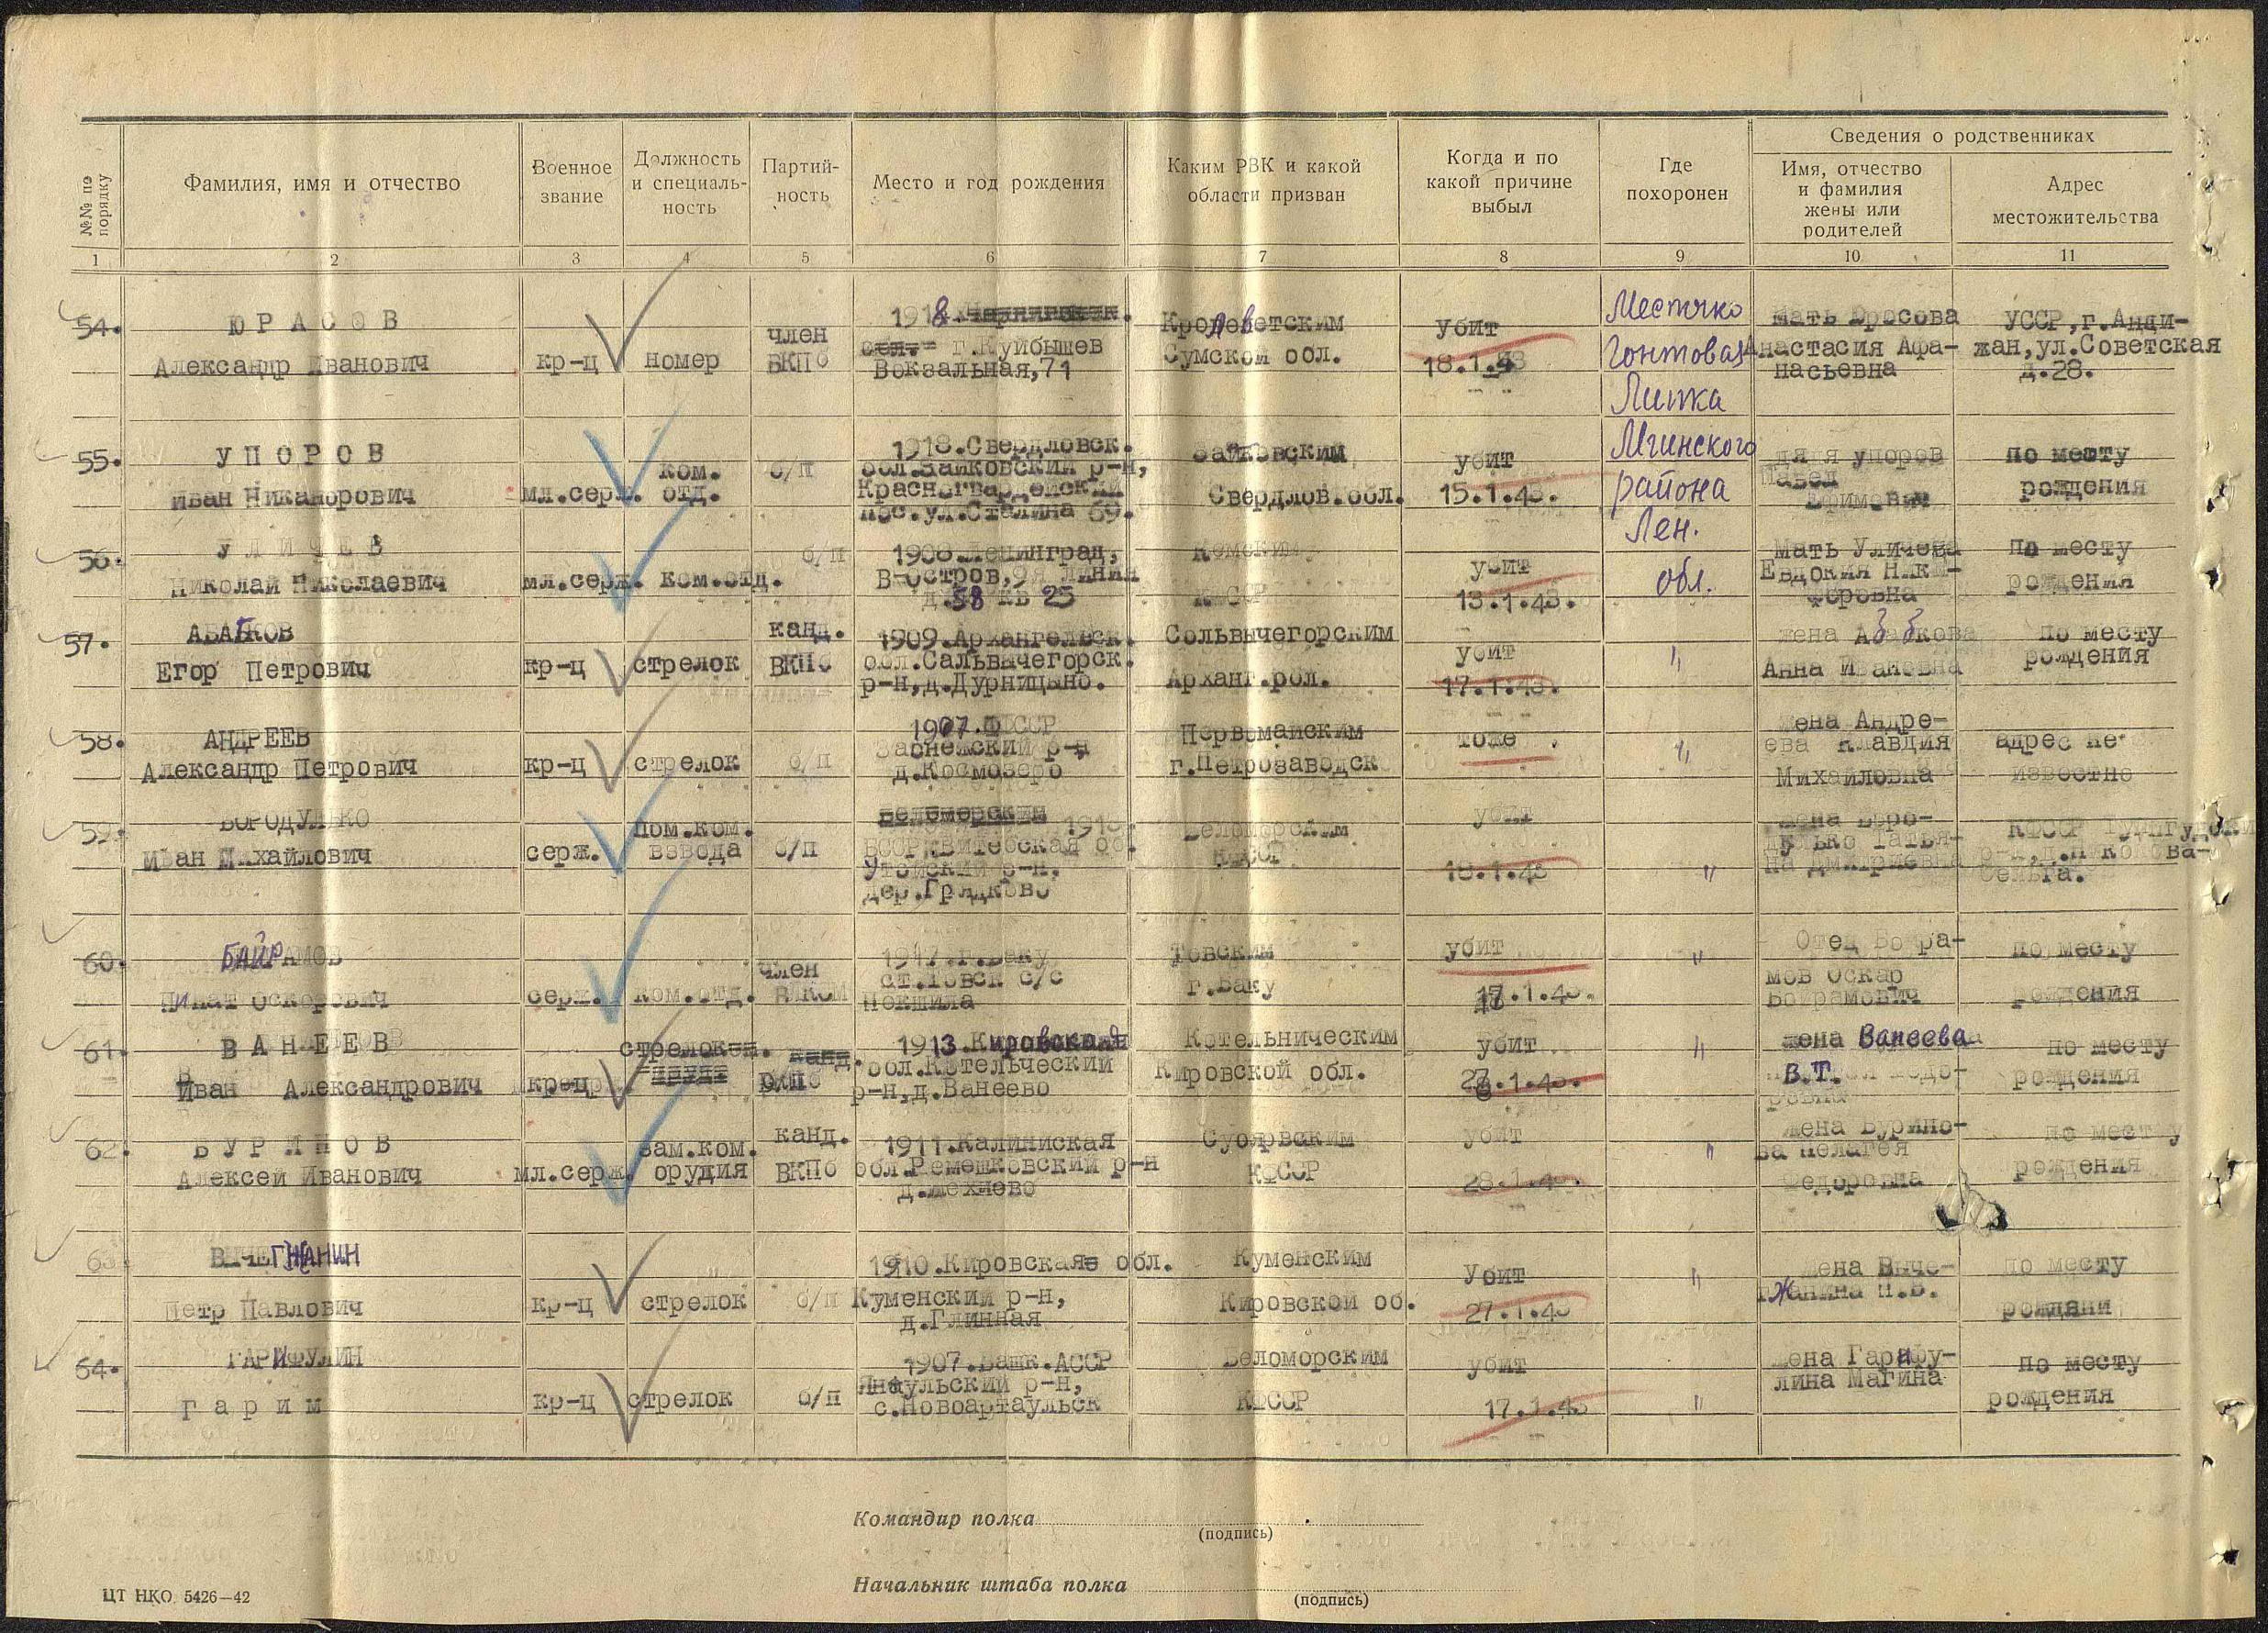 Сведения о родственниках
№№ по порядку
Фамилия, имя и отчество
Военное звание
Должность и специаль-
ность
Партий-
ность
Место и год рождения
Каким РВК и какой
области призван
Когда и по
какой причине
выбыл
Где
похоронен
Имя, отчество
и фамилия
жены или
родителей
Адрес
местожительства
1 2 3 4 5 6 7 8 9 10 11
54.
ЮРАСОВ
Александр Иванович
кр-ц
номер
член
ВКПб
1918.
г.Куйбышев
Вокзальная,71
Кролеветским
Сумской обл.
убит
18.1.43
Местечко
Гонтовая
Липка
Мгинского
района
Лен.
обл.
мать Юросова
Анастасия Афа-
насьевна
УССР,г.Анди-
жан,ул.Советская
д.28.
55.
УПОРОВ
Иван Никанорович
мл.серж.
ком.
отд.
б/п
1918.Свердловск.
обл.Зайковский р-н,
Красногвардейский
пос.ул.Сталина 69.
Зайковским
Свердлов.обл.
убит
15.1.43.
дядя упоров
Павел
Ефимович
по месту
рождения
56.
УЛИЧЕВ
Николай Николаевич
мл.серж.
ком.отд.
б/п
1908.Ленинград,
В-остров,9я линия
д.58 кв 25
Кемским
КФССР
убит
13.1.43.
мать Уличева
Евдокия Ники-
форовна
по месту
рождения
57.
Егор Петрович
кр-ц
стрелок
канд.
ВКПб
1909.Архангельск.
обл.Сальвычегорск.
р-н,д.Дурницыно.
Сольвычегорским
Арханг.рол.
убит
17.1.43.
"
жена
Анна Ивановна
по месту
рождения
58.
АНДРЕЕВ
Александр Петрович
кр-ц
стрелок
б/п
1907.
Заонежский р-н
д.Космозеро
Первомайским
г.Петрозаводск
тоже
"
жена Андре-
ева Клавдия
Михайловна
адрес не-
известно
59.
БОРОДУЛЬКО
Иван Михайлович
серж.
пом.ком.
взвода
б/п
Беломорский
БССР,Витебская об.
р-н.
дер.Грядково
Беломорским
КФССР
убит
18.1.43
"
жена Боро-
дулько Татья-
на Дмитриевна
КФССР
Сельга.
60.
БАЙРАМОВ
Оскорович
серж.
ком.отд.
член
ВЛКСМ
1917.г.Баку
с/с
г.Баку
убит
17.1.43.
"
Отец
мов Оскар
по месту
рождения
61.
ВАНЕЕВ
Иван Александрович
кр-ц
стрелок
1913.Кировская
обл.Котельческий
р-н,д.Ванеево
Котельническим
Кировской обл.
убит
"
жена Ванеева
В.Т.
по месту
рождения
62.
БУРИНОВ
Алексей Иванович
мл.серж.
зам.ком.
орудия
канд.
ВКПб
1911.Калиниская
обл.Ремешковский р-н
Суоярвским
КФССР
убит
28.1.43.
"
жена Бурино-
ва Пелагея
Федоровна
по месту
рождения
63.
ВЫЧЕГЖАНИН
Петр Павлович
кр-ц
стрелок
б/п
1910.Кировская обл.
Куменский р-н,
д.Глинная
Куменским
Кировской об.
Убит
27.1.43
"
жена Выче-
гжанина П.В.
по месту
рождани
64.
ГАРИФУЛИН
Гарим
кр-ц
стрелок
б/п
1907.Башк.АССР
Янаульский р-н,
с.Новоартаульск
Беломорским
КФССР
убит
17.1.43
"
жена Гарифу-
лина Магина
по месту
рождения
Командир полка
(подпись)
Начальник штаба полка
(подпись)
ЦТ НКО 5426—42